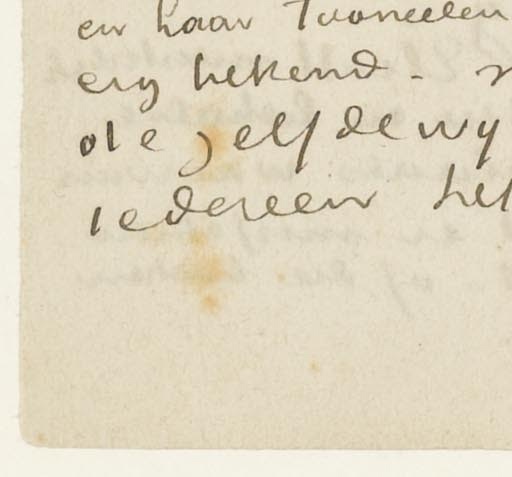 en haar Tooneelen
erg bekend -
dezelfde wij
iedereen het